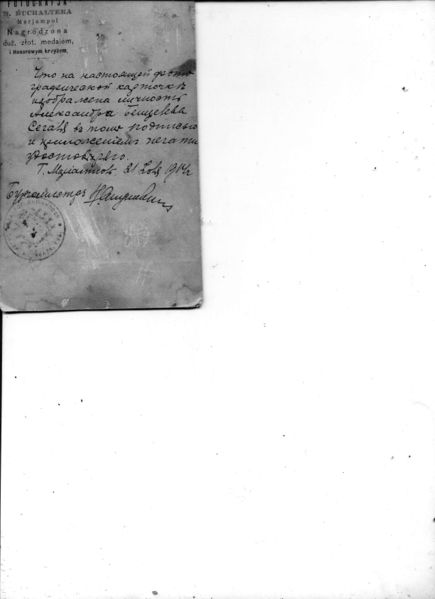 FOTOGRAFJA
B. BUCHALTERA
Marjampol
Nagrodzona
duż. złot. medalem,
i Honorowym krzyżem.
Что на настоящей фото
графической карточкѣ
изображена личность
Александра
въ томъ подписью
и приложеніемъ печати
удостовѣряю.
Г. 31 1914 г
Бургомистръ